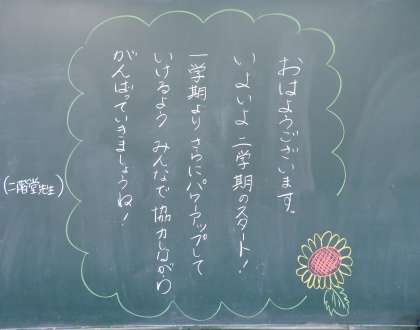 おはようございます。
いよいよ二学期のスタート！
一学期よりさらにパワーアップして
いけるよう みんなで協力しながら
がんばっていきましょうね！
(二階堂先生)